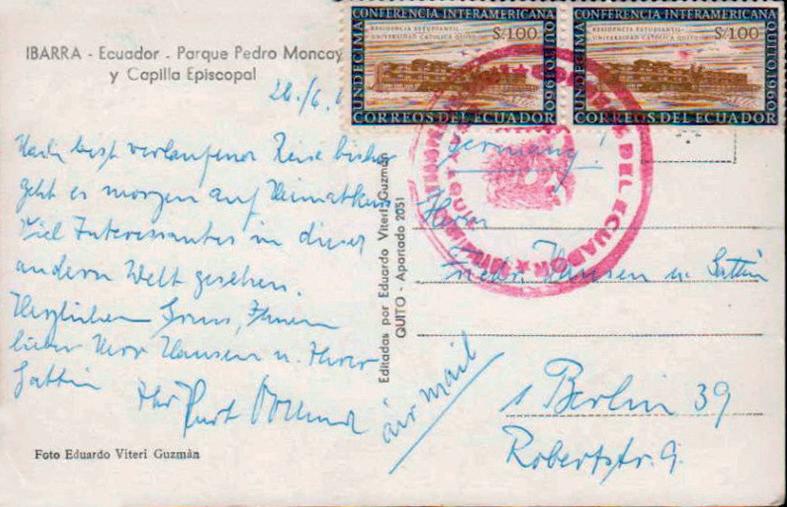 IBARRA - Ecuador - Parque Pedro Moncay
y Capilla Episcopal
UNDECIMA CONFERENCIA INTERAMERICANA QUITO 1960
RESIDENCIA ESTUDIANTIL-
UNIVERSIDAD CATOLICA QUITO
S/.1.00
CORREOS DEL ECUADOR
UNDECIMA CONFERENCIA INTERAMERICANA QUITO 1960
RESIDENCIA ESTUDIANTIL-
UNIVERSIDAD CATOLICA QUITO
S/.1.00
CORREOS DEL ECUADOR
DEL ECUADOR
Nach best verlaufener Reise bisher
geht es morgen auf
Viel Interessantes in dieser
andern Welt gesehen.
Herzlichen Gruss, Ihnen
lieber Herr Hansen u. Ihrer
Gattin
Ihr Kurt
Editadas por Eduardo Viteri Guzmán
QUITO - Apartado 2051
Germany!
Herrn
Friedr. Hansen u. Gattin
air mail
1 Berlin 39
Robertstr. 9.
Foto Eduardo Viteri Guzmán